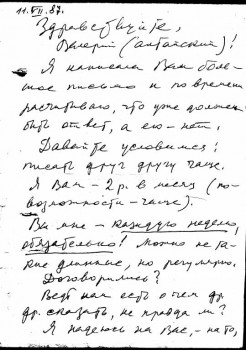 11.VII.87.
Здравствуйте,
Валерий (алтайский)!
Я написала Вам боль-
шое письмо и по времени
рассчитываю, что уже должен
быть ответ, а его – нет.
Давайте условимся:
писать друг другу чаще.
Я Вам – 2 р. в месяц (по-
возможности – чаще).
Вы мне – каждую неделю
обязательно! Можно не та-
кие длинные, но регулярно.
Договорились?
Ведь нам есть о чем др.
др. сказать, не правда ли?
Я надеюсь на Вас, – на то,